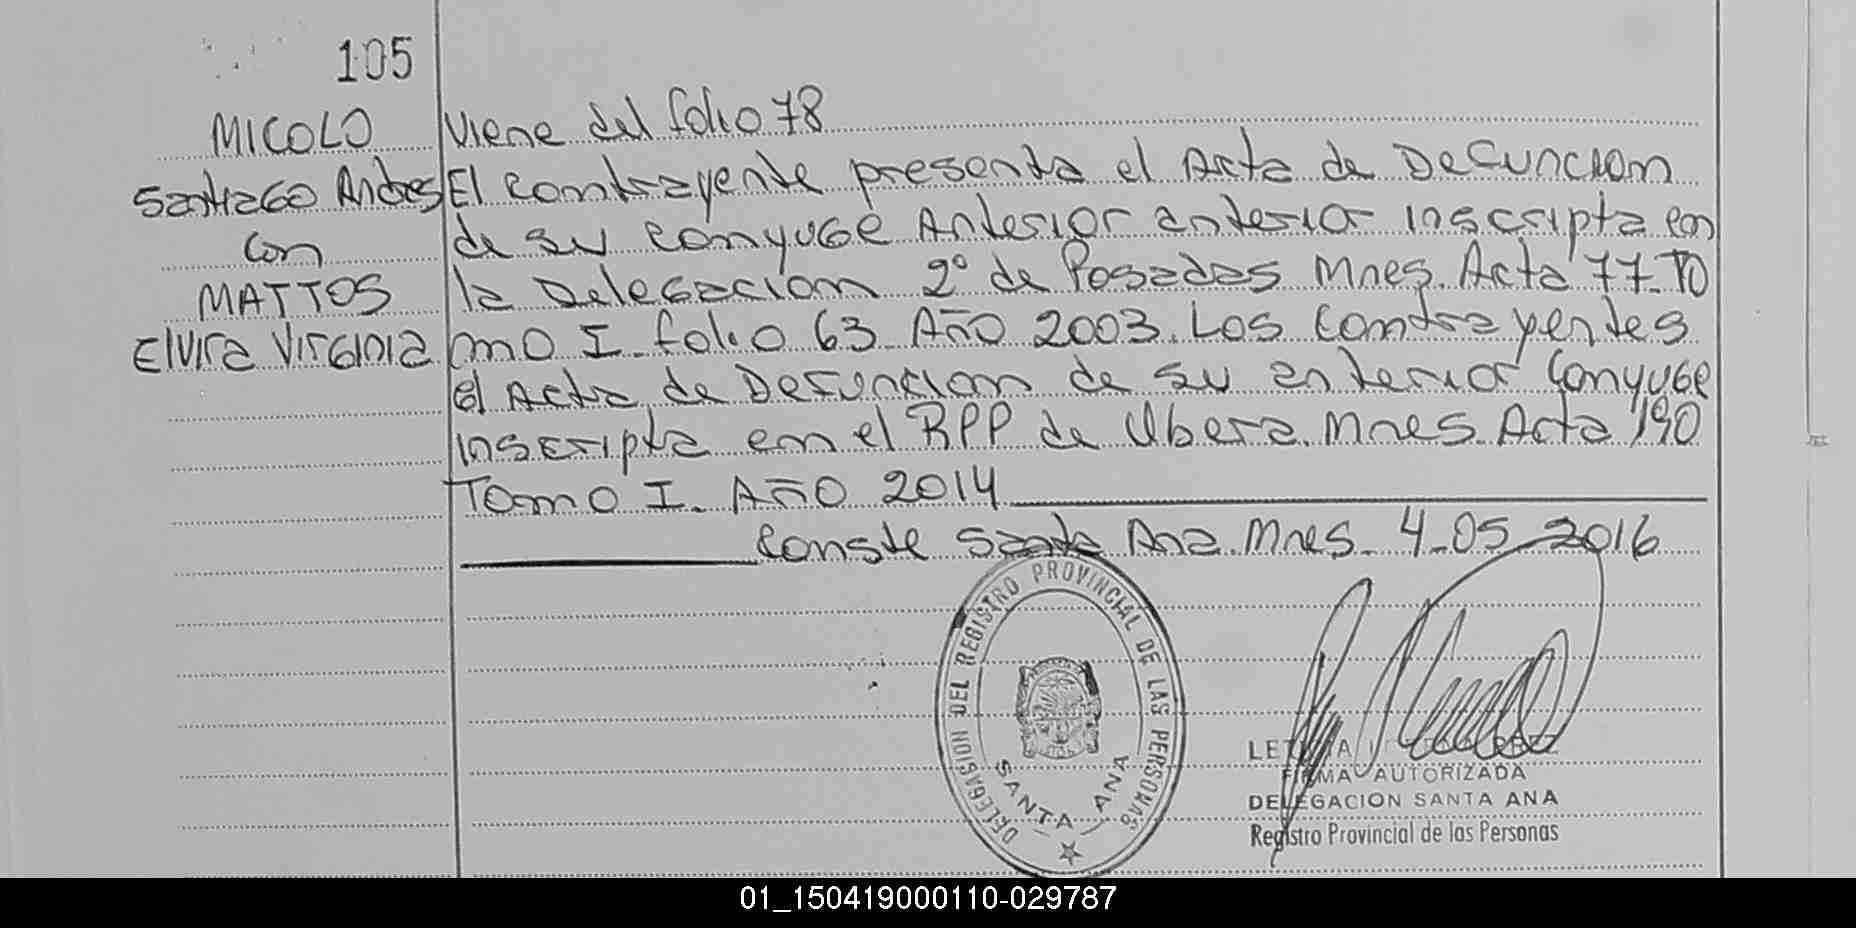 105
MICOLO
Santiago Andres
con
MATTOS
Elvira Virginia
Viene del folio 78
El contrayente presenta el Acta de Defuncion
de su conyuge Anterior anterior inscripta en
la Delegacion 2º de Posadas Mnes. Acta 77. To
mo I. folio 63 Año 2003. Los contrayentes
el Acta de Defuncion de su anterior Conyuge
inscripta en el RPP de Ubera. Mnes. Acta 190
Tomo I. Año 2014
Conste Santa Ana. Mnes. 4-05 2016
DELEGASION DEL REGISTRO PROVINCIAL DE LAS PERSONAS
SANTA ANA
FIRMA AUTORIZADA
DELEGACION SANTA ANA
Registro Provincial de las Personas
01_150419000110-029787